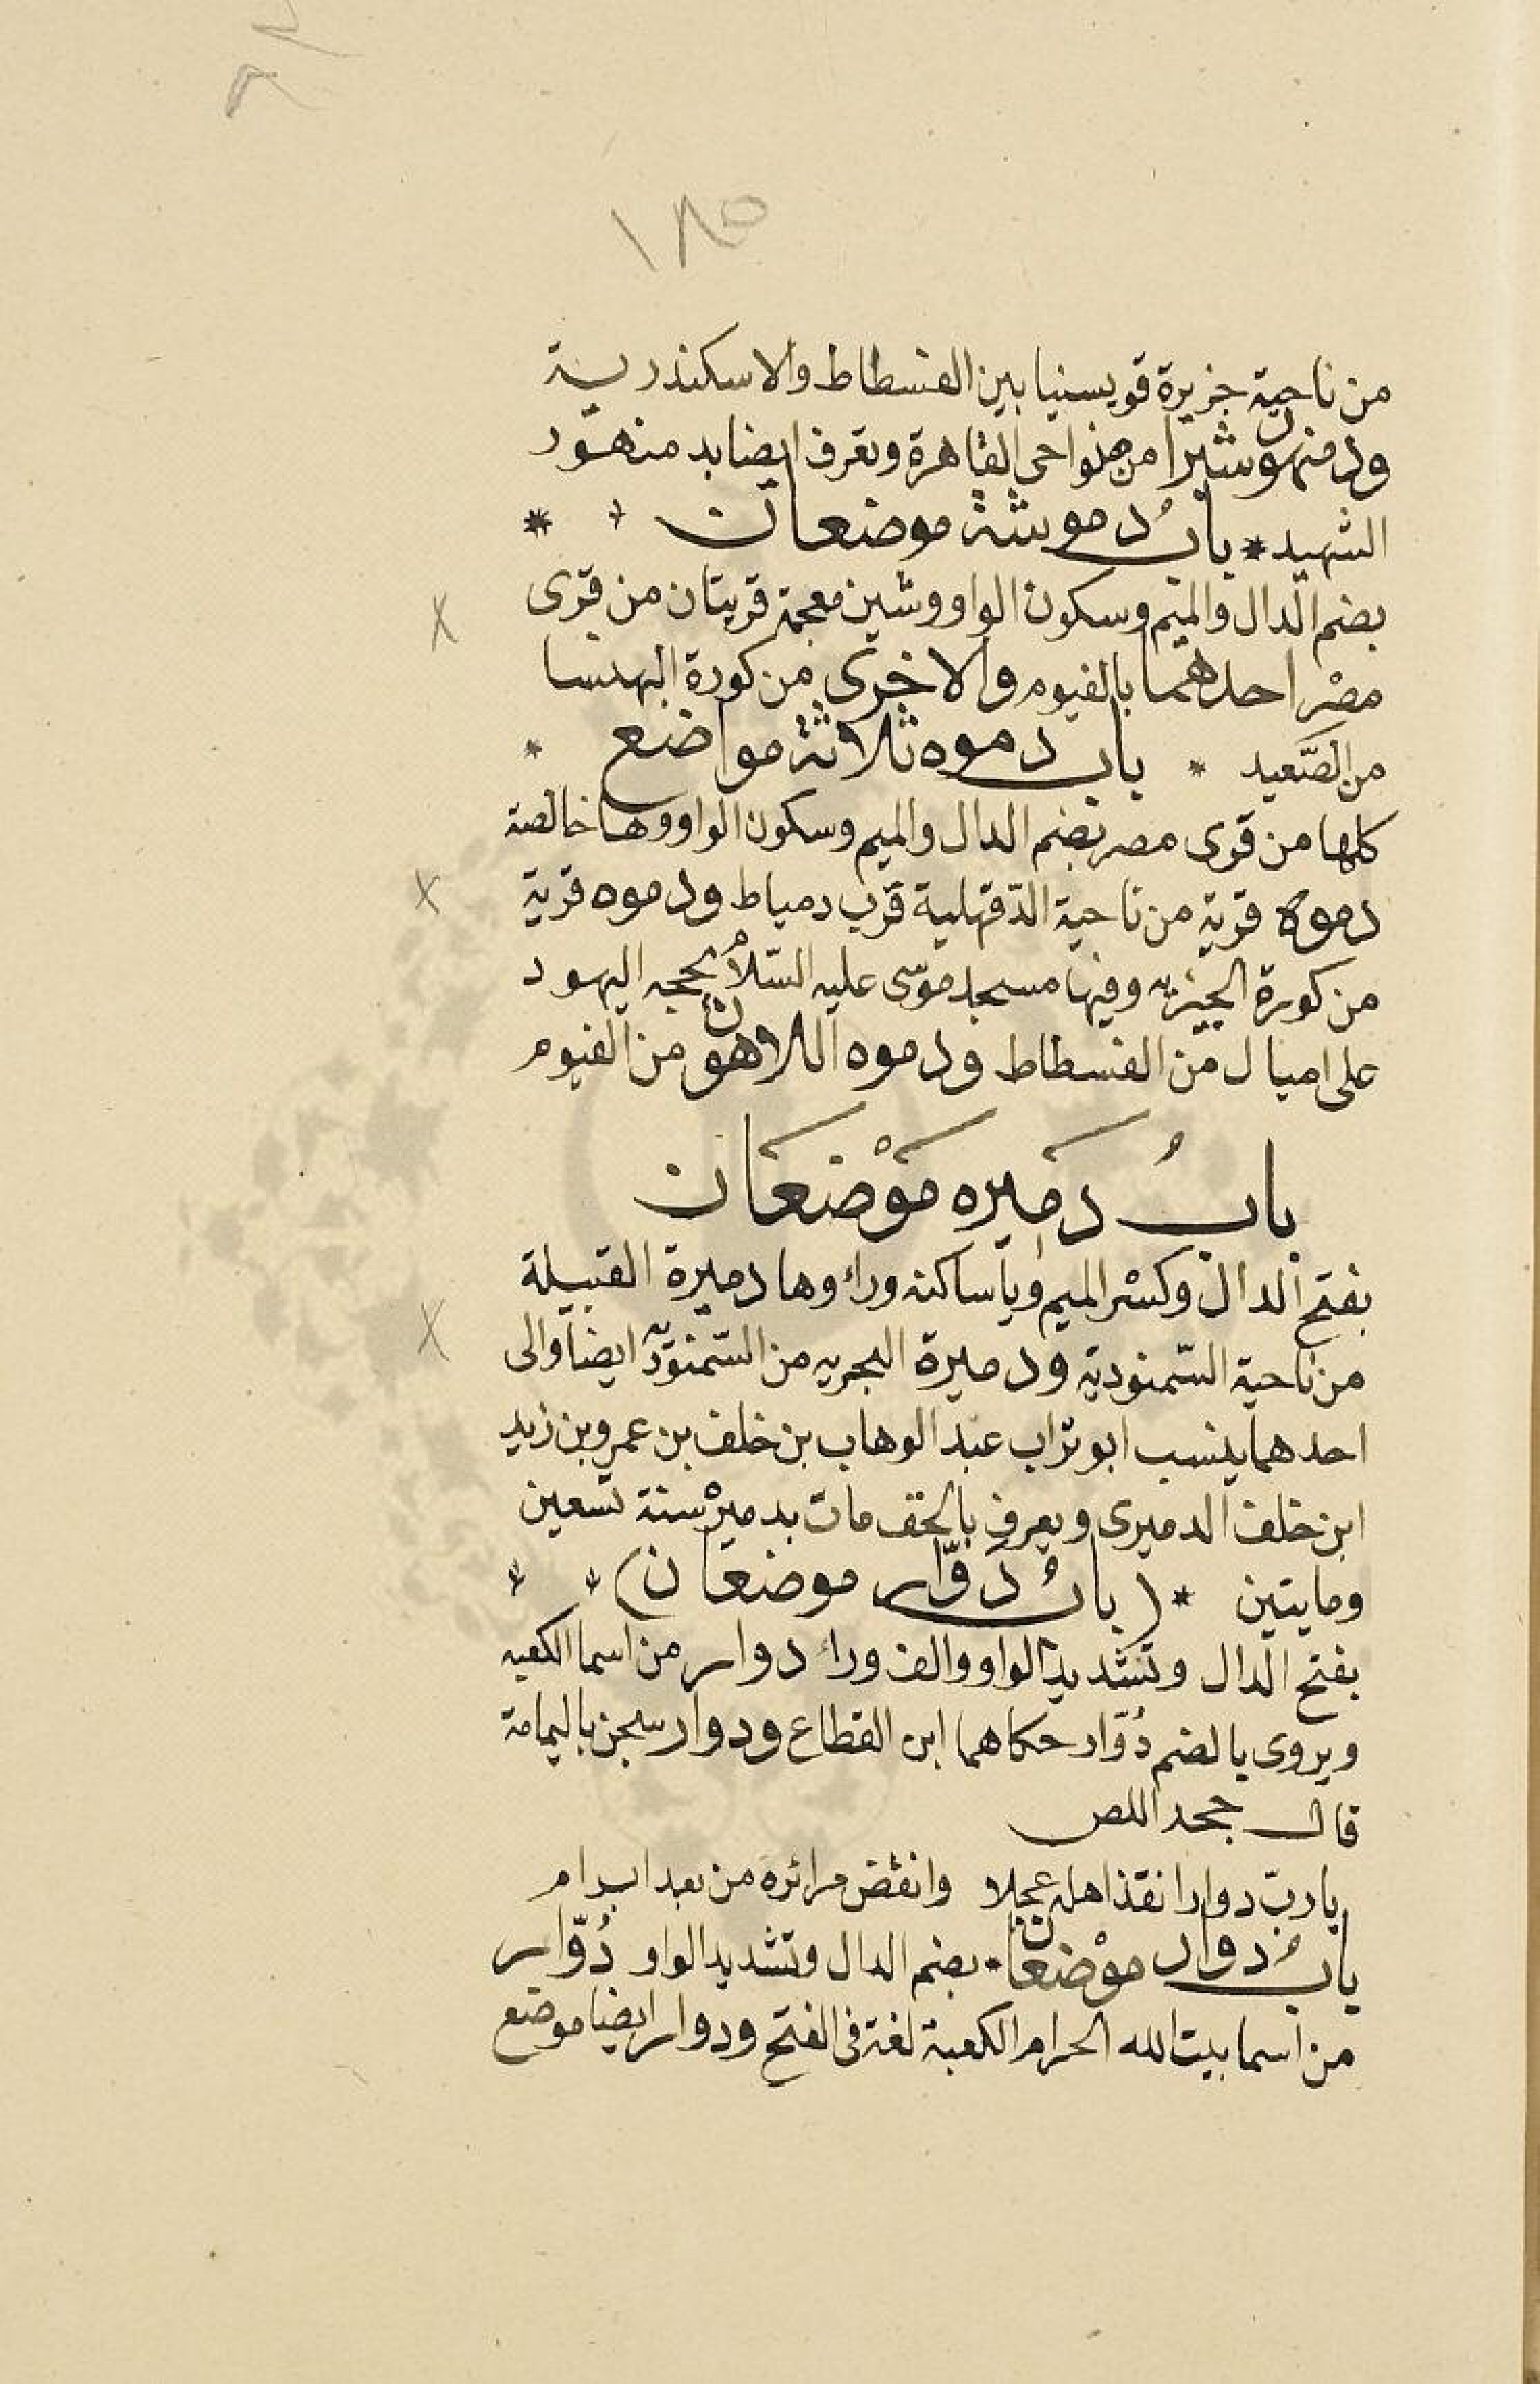 ١٨٥
من ناحية جزيرة قويسنيا بين الفسطاط والاسكندرية
ودمنهوشبرا من نواحى القاهرة وتعرف ايضا بدمنهور
الشهيد * بابُ دموشة موضعان *
بضم الدال والميم وسكون الواو وشين معجمة قريتان من قرى
مصر احدهما بالفيوم والاخرى من كورة البهنسا
من الصّعيد * باب دموه ثلاثة مواضع *
كلها من قرى مصر بضم الدال والميم وسكون الواو وها خالصة
دموه قرية من ناحية الدّقهلية قرب دمياط ودموه قرية
من كورة الجيزيه وفيها مسجد موسى عليه السّلام يحجه اليهود
على اميال من الفسطاط ودموه اللاهون من الفيوم
بابُ دَميره مَوْضعَان
بفتح الدال وكسْر الميم ويا ساكنه وراء وها دميرة القبيلة
من ناحية السّمنودية ودميرة البحريه من السّمنوديّه ايضاً والى
احدهما ينسب ابو تراب عبد الوهاب بن خلف بن عمرو بن زيد
ابن خلف الدميرى ويعرف بالخف مات بدميرْ سنة تسعين
ومايتين * (بابُ دَوَّار موضعان)
بفتح الدال وتشديد الواو والف وراء دوار من اسما الكعبه
ويروى بالضم دُوّار حكاهما ابن القطاع ودوار سجن باليمامة
قال جحد اللص
يا ربّ دوار انقذ اهله عجلا وانقض مرائره من بعد ابرام
بابُ دوار موْضعان * بضم الدال وتشديد الواو دُوّار
من اسما بيت الله الحرام الكعبة لغة فى الفتح ودوار ايضا موضع